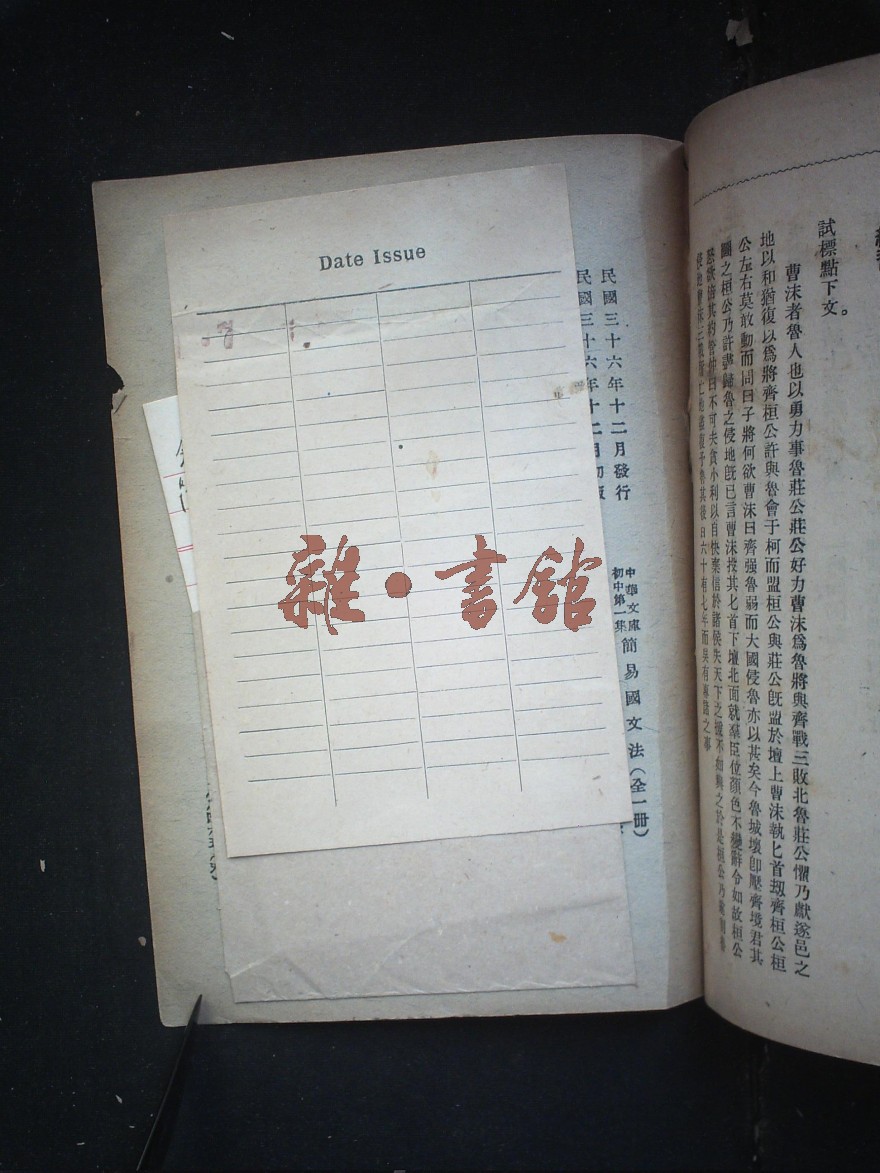 試標點下文。
曹沫者魯人也以勇力事魯莊公莊公好力曹沫爲魯將與齊戰三敗北魯莊公懼乃獻遂邑之
地以和猶復以爲將齊桓公許與魯會于柯而盟桓公與莊公旣盟於壇上曹沫執匕首刼齊桓公桓
公左右莫敢動而問曰子將何欲曹沫曰齊强魯弱而大國侵魯亦以甚矣今魯城壞卽壓齊境君其
圖之桓公乃許盡歸魯之侵地旣已言曹沫投其匕首下壇北面就羣臣位顏色不變辭令如故桓公
怒欲倍其約管仲曰不可夫貪小利以自快棄信於諸侯失天下之援不如與之於是桓公乃
其後百六十有七年而吳有專諸之事
民國三十六年十二月發行
民國三十六年十二月初版
中華文庫
初中第一集
簡易國文法(全一册)
Date Issue
雜·書館